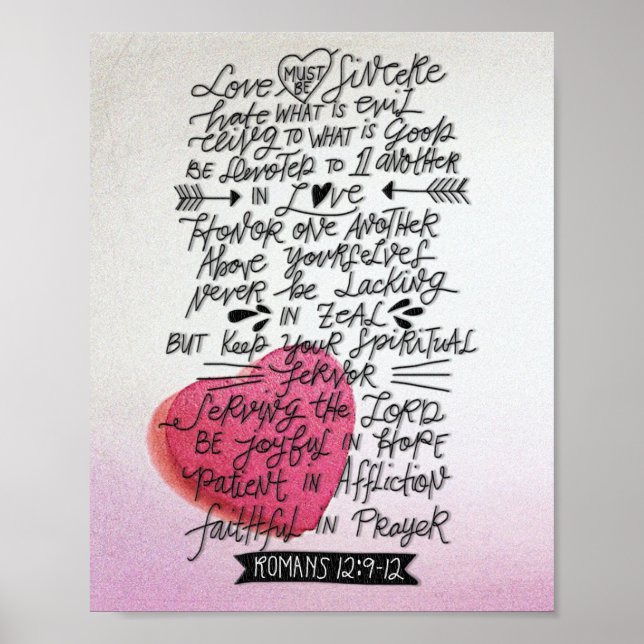 Love MUST BE Sincere
hate WHAT IS evil
cling TO WHAT IS Good
BE Devoted TO 1 ANOTHER
IN Love
HONOR ONE ANOTHER
Above yourselves
Never be Lacking
IN ZEAL
BUT Keep your Spiritual
Fervor
Serving the LORD
BE Joyful IN HOPE
Patient IN Affliction
faithful IN Prayer
ROMANS 12:9-12